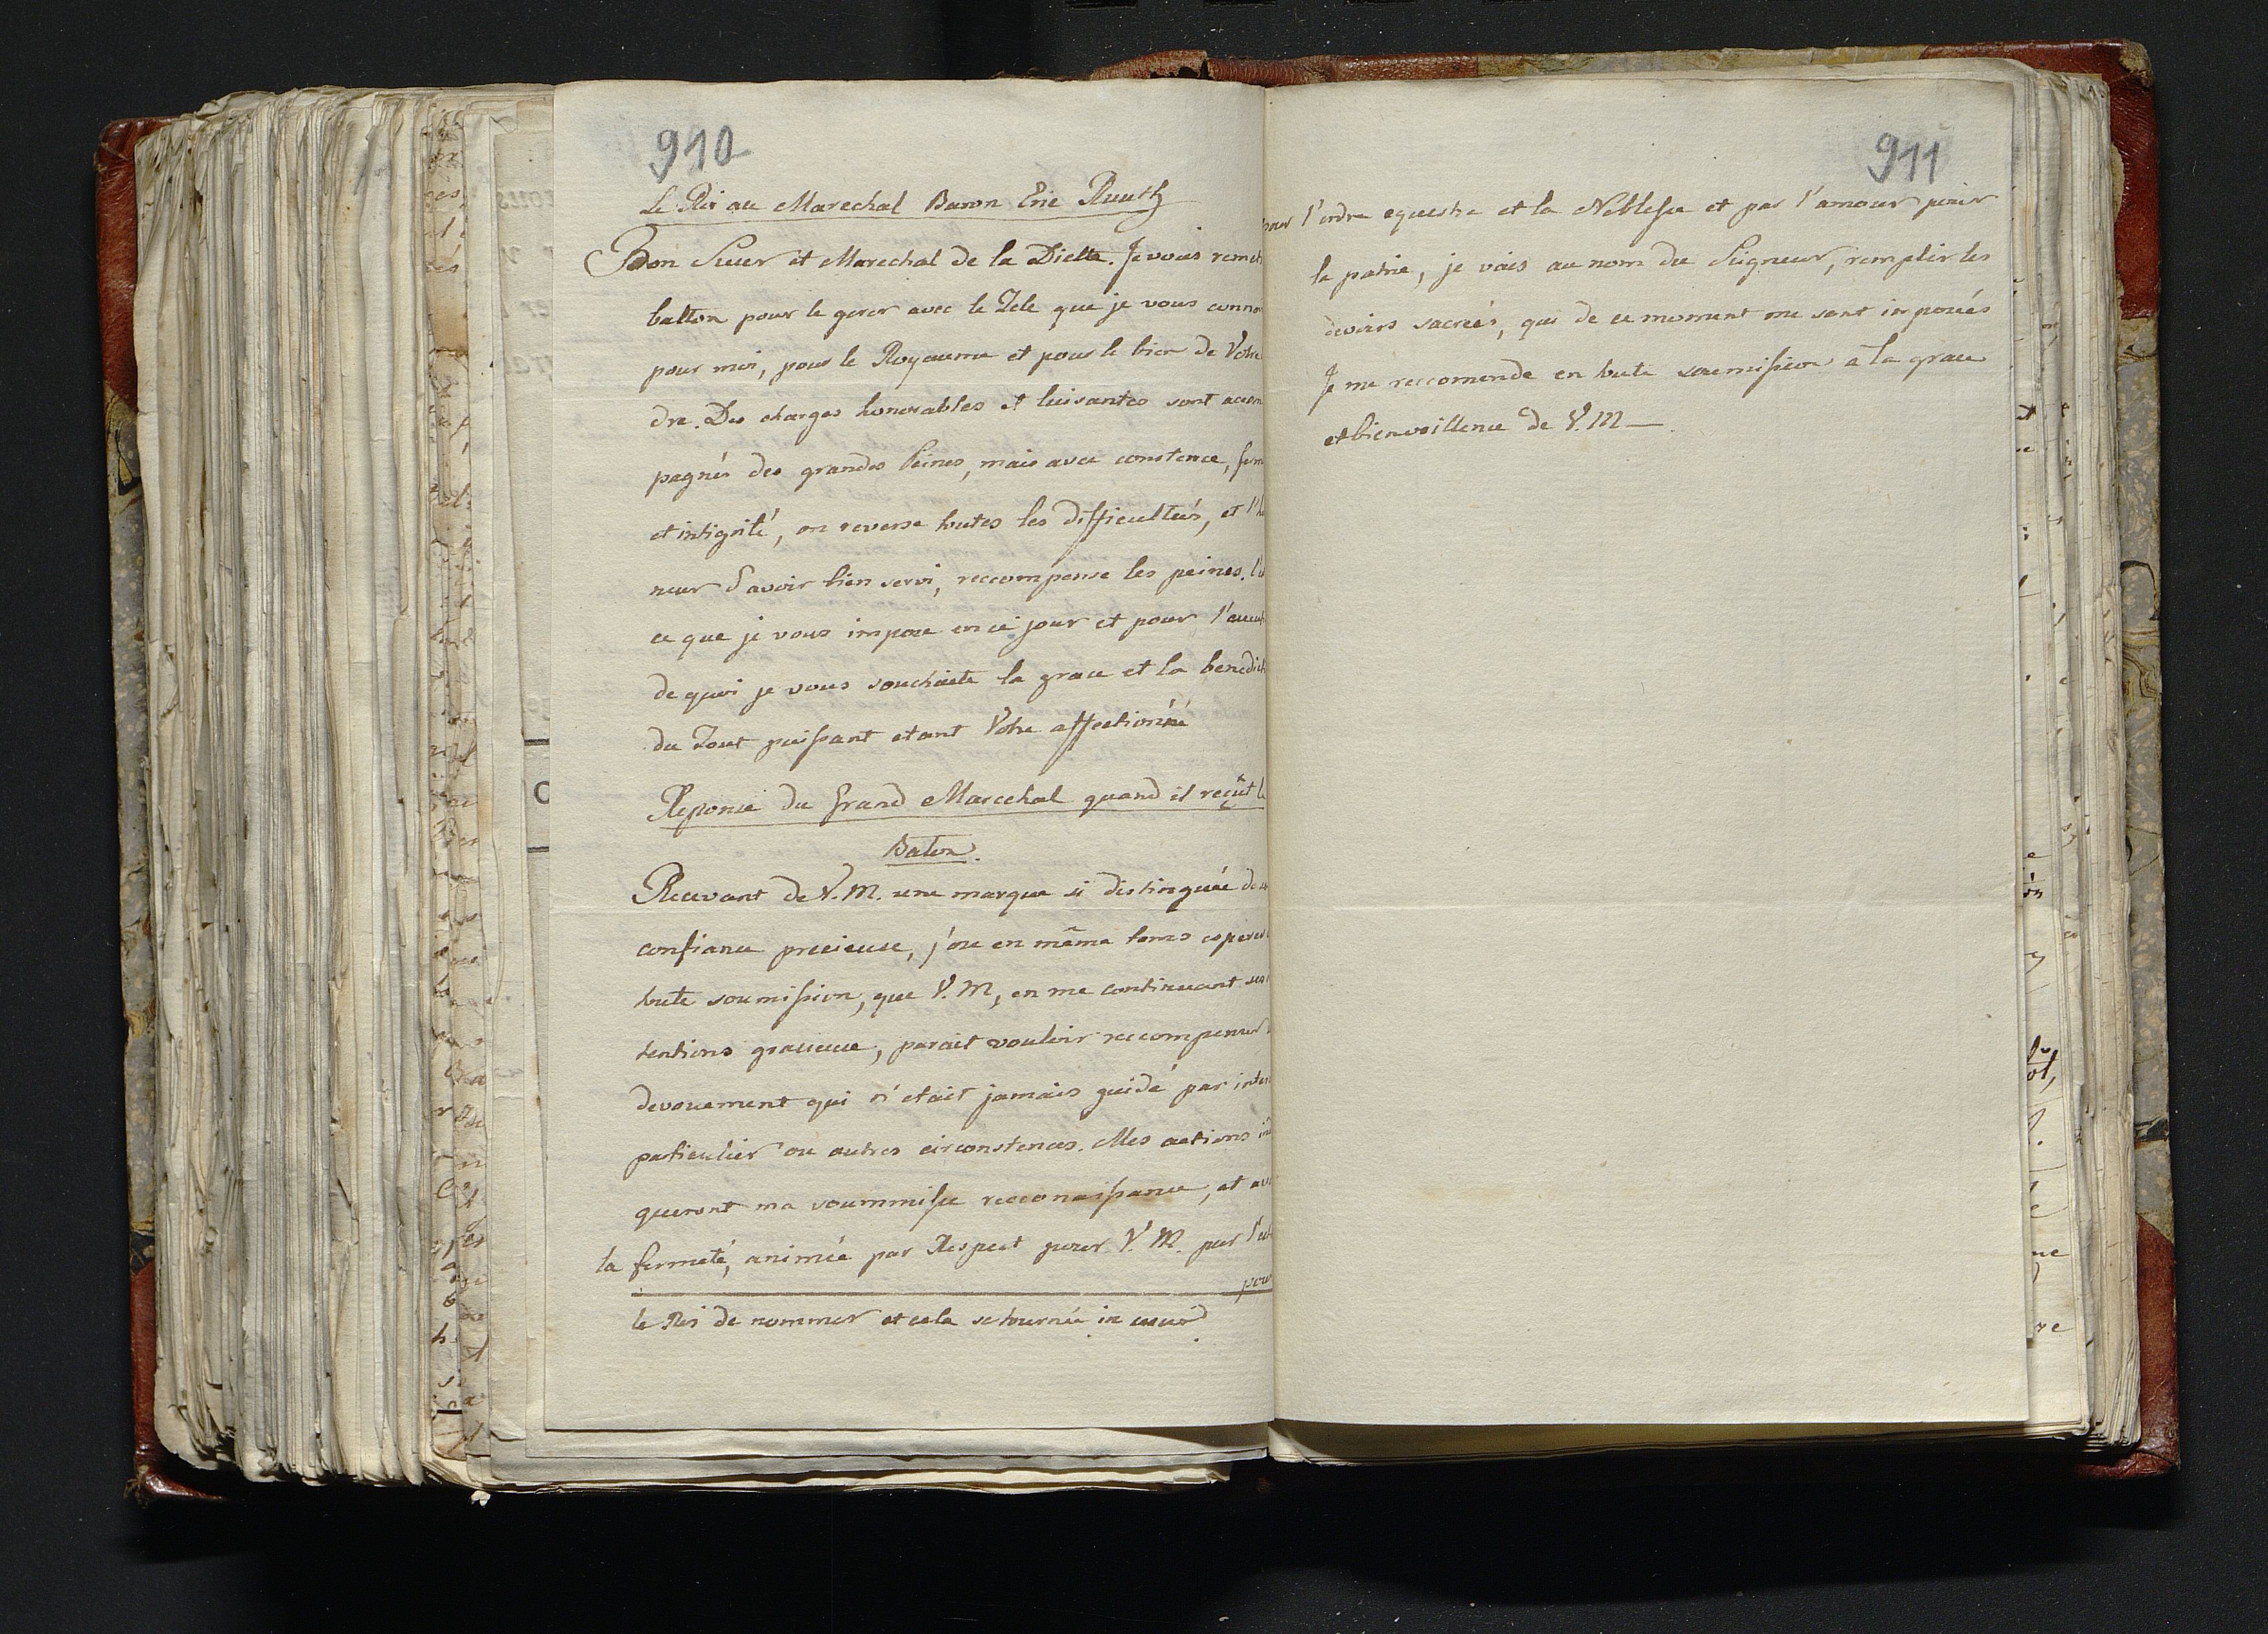 910
Le Roi au Marechal Baron Eric Ruuth
Bon Sieur et Marechal de la Diette. Je vous remet
batton pour le gerer avec le Zele que je vous conno
pour moi, pour le Royaume et pour le bien de Votre
dre. Des charges honorables et luisantes sont accom
pagnés des grandes Peines, mais avec constence, ferm
et intigrité, on reverse toutes les difficulteés, et l'ho
neur d'avoir bien servi, reccompense les peines.
ce que je vous impose en ce jour et pour l'
de quoi je vous souchaite la grace et la benedict
du Tout puissant etant Votre affectionné
Reponse du Grand Marechal quand il reçut l
Baton.
Recevant de V. M. une marque si distinguée de
confiance precieuse, j'ose en même tems esperer
toute soumission, que V. M, en me continuant ses
tentions gracieuse, parait vouloir reccompenser
devouement qui n'etait jamais guidé par inter
particulier ou autres circonstences. Mes actions in
queront ma soummise recconaissance, et av
la fermeté, animée par Respect pour V. M. par l'est
pour
le Roi de nommer et cela se tournée in
911
pour l'ordre equestre et la Noblesse et par l'amour pour
la patrie, je vais au nom du Seigneur, remplir les
devoirs sacreés, qui de ce moment me sont imposés
Je me reccomende en toute soumission a la grace
et bienveillence de V. M —.